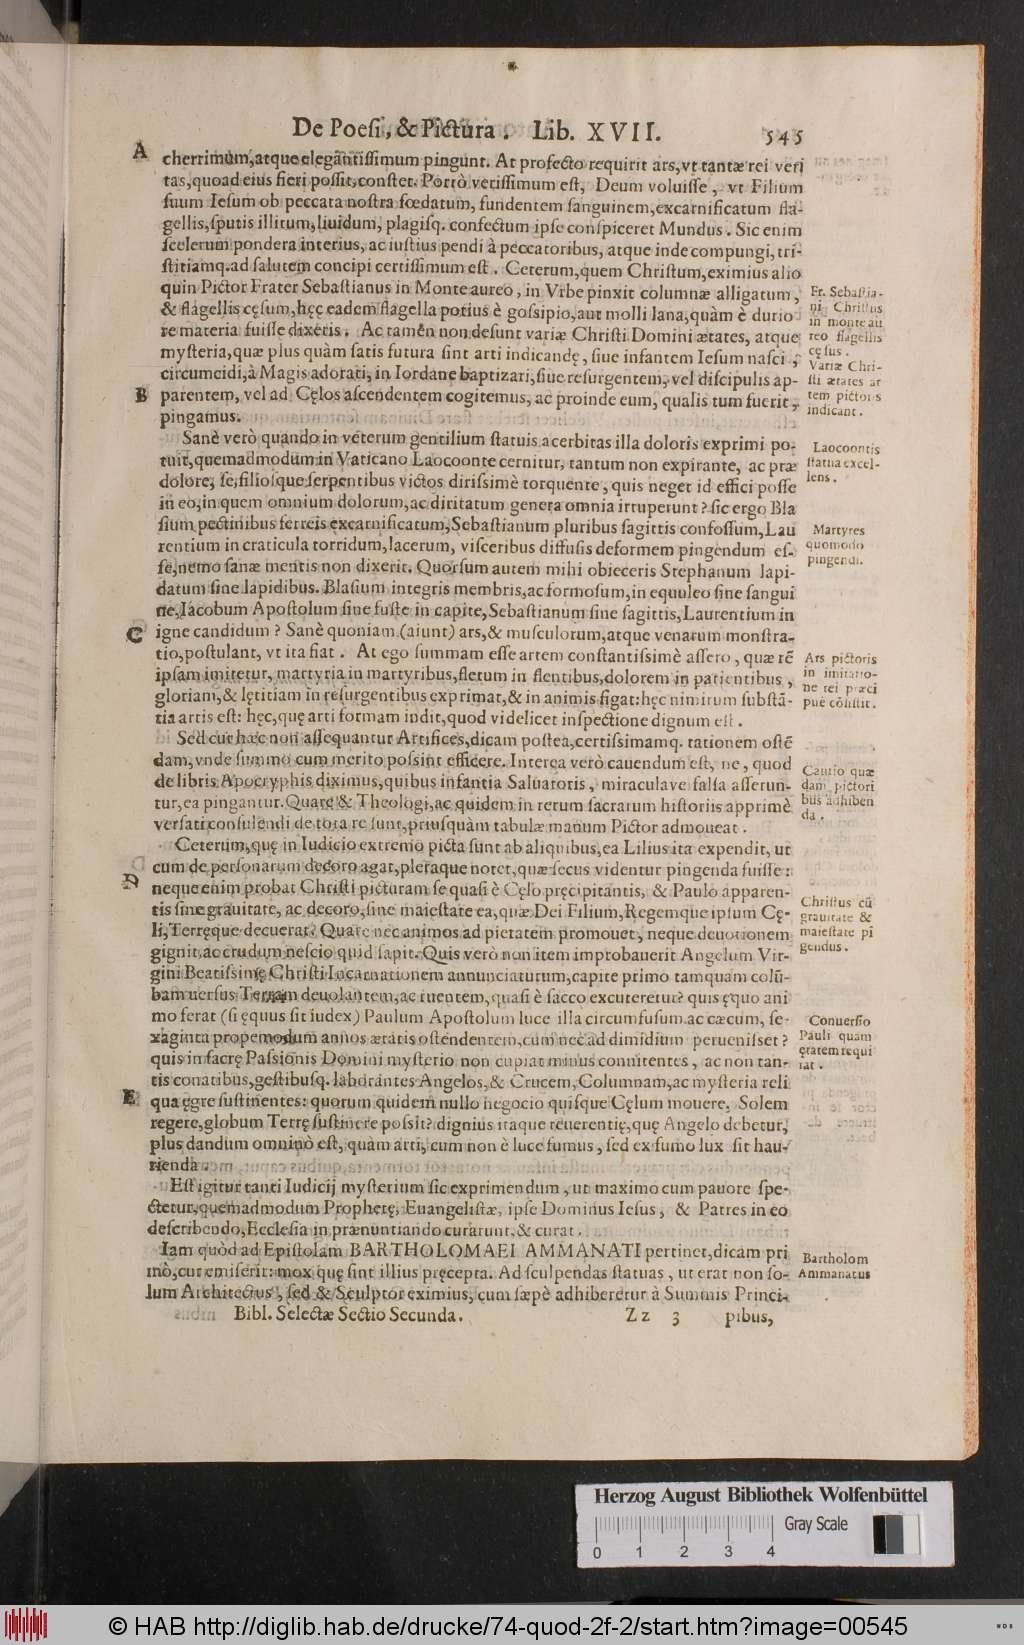 De Poesi, & Pictura. Lib. XVII. 545
A
cherrimum, atque elegãntissimum pingunt. At profecto requirit ars, vt tantæ rei veri
tas, quoad eius fieri possit, constet. Porrò verissimum est, Deum voluisse, vt Filium
suum Iesum ob peccata nostra fœdatum, fundentem sanguinem, excarnificatum fla-
gellis, sputis illitum, liuidum, plagisq. confectum ipse conspiceret Mundus. Sic enim
scelerum pondera interius, ac iustius pendi à peccatoribus, atque inde compungi, tri-
stitiamq. ad salutem concipi certissimum est. Ceterum, quem Christum, eximius alio
quin Pictor Frater Sebastianus in Monte aureo, in Vrbe pinxit columnæ alligatum,
& flagellis cęsum, hęc eadem flagella potius è gossipio, aut molli lana, quàm è durio
re materia fuisse dixeris. Ac tamen non desunt variæ Christi Domini ætates, atque
mysteria, quæ plus quàm satis futura sint arti indicandę, siue infantem Iesum nasci,
circumcidi, à Magis adorati, in Iordane baptizari, siue resurgentem, vel discipulis ap-
parentem, vel ad Cęlos ascendentem cogitemus, ac proinde eum, qualis tum fuerit,
pingamus.
Fr. Sebastia-
ni Christus
in monte au
reo flagellis
cęsus.
Variæ Chri-
sti ætates ar
tem pictoris
indicant.
B
Sanè verò quando in veterum gentilium statuis acerbitas illa doloris exprimi po-
tuit, quemadmodum in Vaticano Laocoonte cernitur, tantum non expirante, ac præ
dolore, se, filiosque serpentibus victos dirissimè torquente, quis neget id effici posse
in eo, in quem omnium dolorum, ac diritatum genera omnia irruperunt? sic ergo Bla
sium pectinibus ferreis excarnificatum, Sebastianum pluribus sagittis confossum, Lau
rentium in craticula torridum, lacerum, visceribus diffusis deformem pingendum es-
se, nemo sanæ mentis non dixerit. Quorsum autem mihi obieceris Stephanum lapi-
datum sine lapidibus. Blasium integris membris, ac formosum, in equuleo sine sangui
ne, Iacobum Apostolum sine fuste in capite, Sebastianum sine sagittis, Laurentium in
igne candidum? Sanè quoniam (aiunt) ars, & musculorum, atque venarum monstra-
tio, postulant, vt ita fiat. At ego summam esse artem constantissimè assero, quæ rẽ
ipsam imitetur, martyria in martyribus, fletum in flentibus, dolorem in patientibus,
gloriam, & lętitiam in resurgentibus exprimat, & in animis figat: hęc nimirum substã-
tia artis est: hęc, quę arti formam indit, quod videlicet inspectione dignum est.
Laocoontis
statua excel-
lens.
Martyres
quomodo
pingendi.
C
Ars pictoris
in imitatio-
ne rei præci
puè cõsistit.
Sed cur hæc non assequantur Artifices, dicam postea, certissimamq. rationem ostẽ
dam, vnde summo cum merito possint efficere. Interea verò cauendum est, ne, quod
de libris Apocryphis diximus, quibus infantia Saluatoris, miraculave falsa asserun-
tur, ea pingantur. Quare & Theologi, ac quidem in rerum sacrarum historiis apprimè
versati consulendi de tota re sunt, priusquàm tabulæ manum Pictor admoueat.
Cautio quæ
dam pictori
bus adhiben
da.
Ceterum, quę in Iudicio extremo picta sunt ab aliquibus, ea Lilius ita expendit, ut
cum de personarum decoro agat, pleraque notet, quæ secus videntur pingenda fuisse:
neque enim probat Christi picturam se quasi è Cęlo pręcipitantis, & Paulo apparen-
tis sine grauitate, ac decoro, sine maiestate ea, quæ Dei Filium, Regemque ipsum Cę-
li, Terręque decuerat. Quare nec animos ad pietatem promouet, neque deuotionem
gignit, ac crudum nescio quid sapit. Quis verò non item improbauerit Angelum Vir-
gini Beatissimę Christi Incarnationem annunciaturum, capite primo tamquam colũ-
bam uersus Terram deuolantem, ac ruentem, quasi è sacco excuteretur? quis ęquo ani
mo ferat (si ęquus sit iudex) Paulum Apostolum luce illa circumfusum ac cæcum, se-
xaginta propemodum annos ætatis ostendentem, cum nec ad dimidium peruenisset?
quis in sacrę Passionis Domini mysterio non cupiat minus connitentes, ac non tan-
tis conatibus, gestibusq. laborantes Angelos, & Crucem, Columnam, ac mysteria reli
qua ęgre sustinentes: quorum quidem nullo negocio quisque Cęlum mouere, Solem
regere, globum Terrę sustinere possit? dignius itaque reuerentię, quę Angelo debetur,
plus dandum omninò est, quàm arti, cum non è luce fumus, sed ex fumo lux sit hau-
rienda.
D
Christus cũ
grauitate &
maiestate pĩ
gendus.
Conuersio
Pauli quam
ętatem requi
rat.
E
Est igitur tanti Iudicij mysterium sic exprimendum, ut maximo cum pauore spe-
ctetur, quemadmodum Prophetę, Euangelistæ, ipse Dominus Iesus, & Patres in eo
describendo, Ecclesia in prænuntiando curarunt, & curat.
Iam quòd ad Epistolam BARTHOLOMAEI AMMANATI pertinet, dicam pri
mò, cur emiserit: mox quę sint illius pręcepta. Ad sculpendas statuas, ut erat non so-
lum Architectus, sed & Sculptor eximius, cum sæpè adhiberetur à Summis Princi-
Bartholom
Ammanatus
Bibl. Selectæ Sectio Secunda. Zz 3 pibus,
Herzog August Bibliothek Wolfenbüttel
Gray Scale
0 1 2 3 4
© HAB http://diglib.hab.de/drucke/74-quod-2f-2/start.htm?image=00545